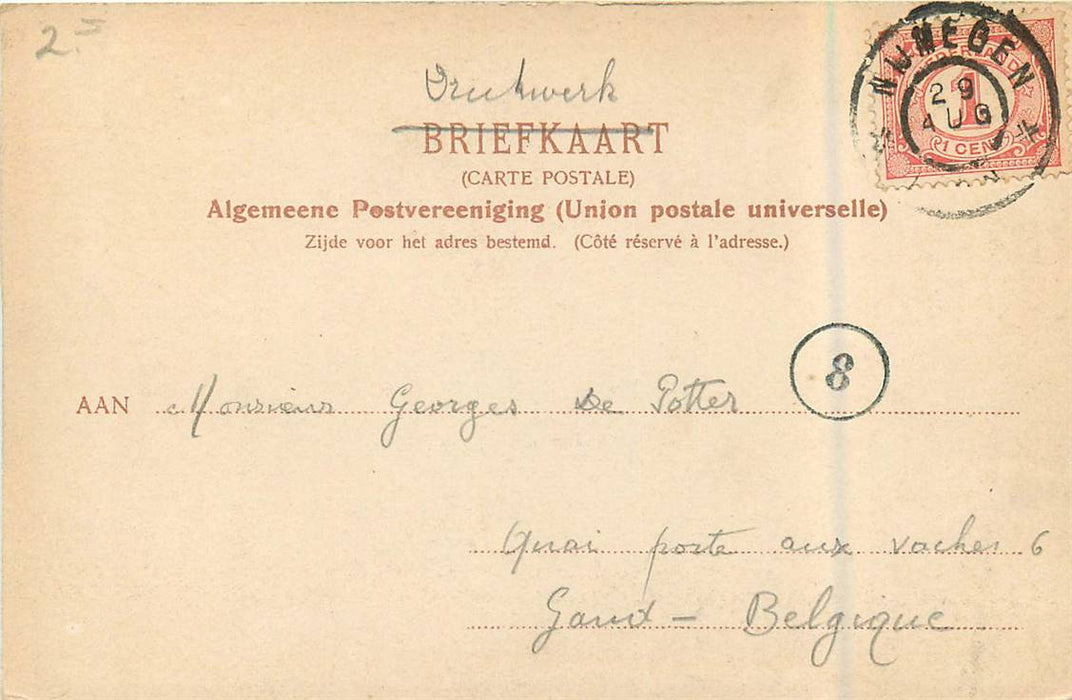 2.=
Drukwerk
BRIEFKAART
(CARTE POSTALE)
Algemeene Postvereeniging (Union postale universelle)
Zijde voor het adres bestemd. (Côté réservé à l'adresse.)
NIJMEGEN
29
AUG
NEDERLAND
1
1 CENT
8
AAN Monsieur Georges De Potter
Quai porte aux vaches 6
Gand - Belgique